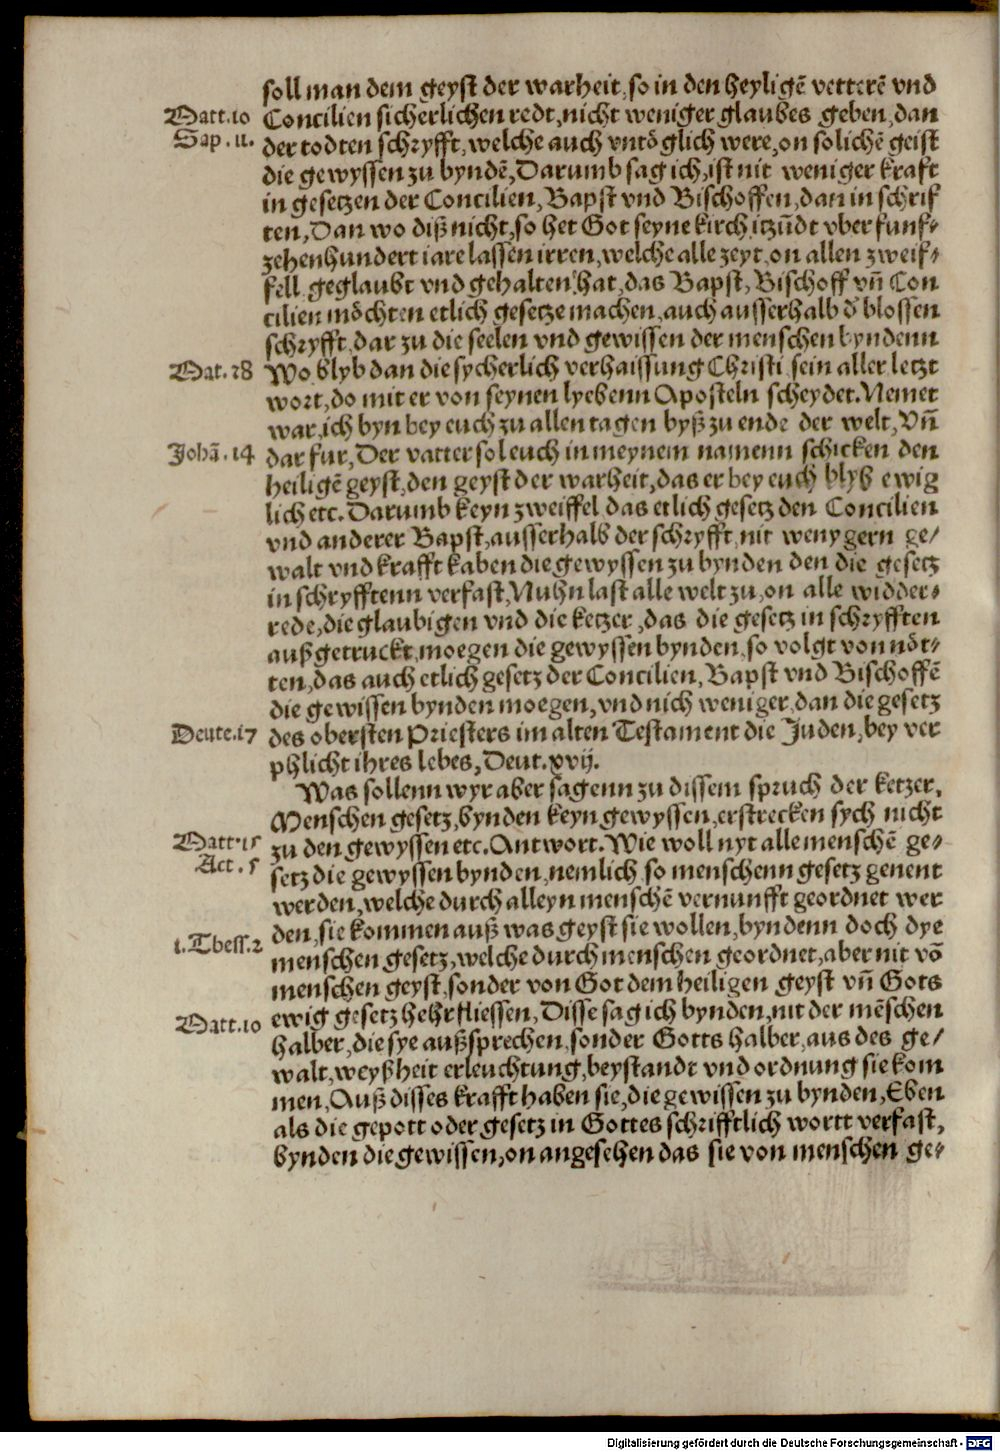 soll man dem geyst der warheit, so in den heyligē vetterē vnd
Matt.10 Concilien sicherlichen redt, nicht weniger glaubes geben, dan
Sap. 11. der todten schryfft, welche auch vntöglich were, on solichē geist
die gewyssen zu byndē, Darumb sag ich, ist nit weniger kraft
in gesetzen der Concilien, Bapst vnd Bischoffen, dan in schrif
ten, Dan wo diß nicht, so het Got seyne kirch itzūdt vber funf-
zehenhundert iare lassen irren, welche alle zeyt, on allen zweif-
fell geglaubt vnd gehalten hat, das Bapst, Bischoff vn̄ Con
cilien möchten etlich gesetze machen, auch ausserhalb d' blossen
schryfft, dar zu die seelen vnd gewissen der menschen byndenn
Mat. 28 Wo blyb dan die sycherlich verhaissung Christi sein aller letzt
wort, do mit er von seynen lyebenn Aposteln scheydet. Nemet
war, ich byn bey euch zu allen tagen byß zu ende der welt, Vn̄
Johā. 14 dar fur, Der vatter sol euch in meynem namenn schicken den
heiligē geyst, den geyst der warheit, das er bey euch blyb ewig
lich etc. Darumb keyn zweiffel das etlich gesetz den Concilien
vnd anderer Bapst, ausserhalb der schryfft, nit wenygern ge-
walt vnd krafft kaben die gewyssen zu bynden den die gesetz
in schryfftenn verfast, Nuhn last alle welt zu, on alle widder-
rede, die glaubigen vnd die ketzer, das die gesetz in schryfften
außgetruckt, moegen die gewyssen bynden, so volgt von nöt-
ten, das auch etlich gesetz der Concilien, Bapst vnd Bischoffē
die gewissen bynden moegen, vnd nich weniger, dan die gesetz
Deute.17 des obersten Priesters im alten Testament die Juden, bey ver
phlicht ihres lebes, Deut. xvij.
Was sollenn wyr aber sagenn zu dissem spruch der ketzer,
Menschen gesetz, bynden keyn gewyssen, erstrecken sych nicht
Matt.15 zu den gewyssen etc. Antwort. Wie woll nyt alle menschē ge-
Act. 5 setz die gewyssen bynden, nemlich, so menschenn gesetz genent
werden, welche durch alleyn menschē vernunfft geordnet wer
den, sie kommen auß was geyst sie wollen, byndenn doch dye
1. Thess.2 menschen gesetz, welche durch menschen geordnet, aber nit vō
menschen geyst, sonder von Got dem heiligen geyst vn̄ Gots
ewig gesetz hehr fliessen, Disse sag ich bynden, nit der mēschen
Matt.10 halber, die sye außsprechen, sonder Gotts halber, aus des ge-
walt, weyßheit erleuchtung, beystandt vnd ordnung sie kom
men, Auß disses krafft haben sie, die gewissen zu bynden, Eben
als die gepott oder gesetz in Gottes schrifftlich wortt verfast,
bynden die gewissen, on angesehen das sie von menschen ge-
Digitalisierung gefördert durch die Deutsche Forschungsgemeinschaft - DFG